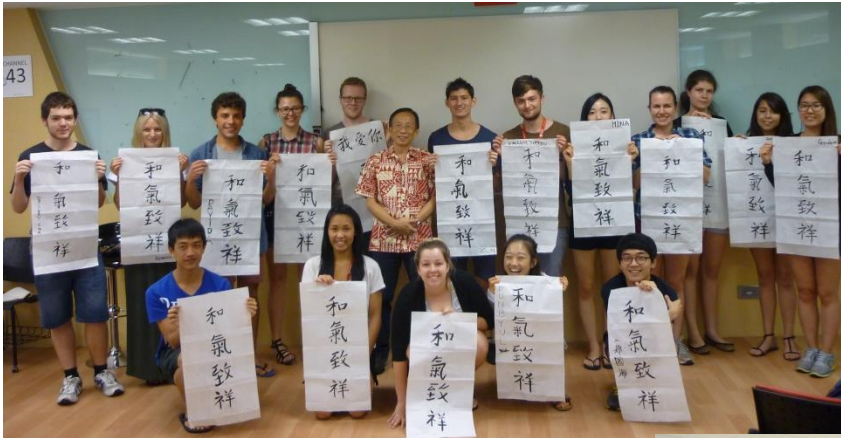 CHANNEL
43
和氣致祥
和氣致祥
和氣致祥
和氣致祥
我愛你
和氣致祥
和氣致祥
和氣致祥
MINA
和氣致祥
和氣致祥
和氣致祥
和氣致祥
和氣致祥
和氣致祥
和氣致祥
和氣致祥